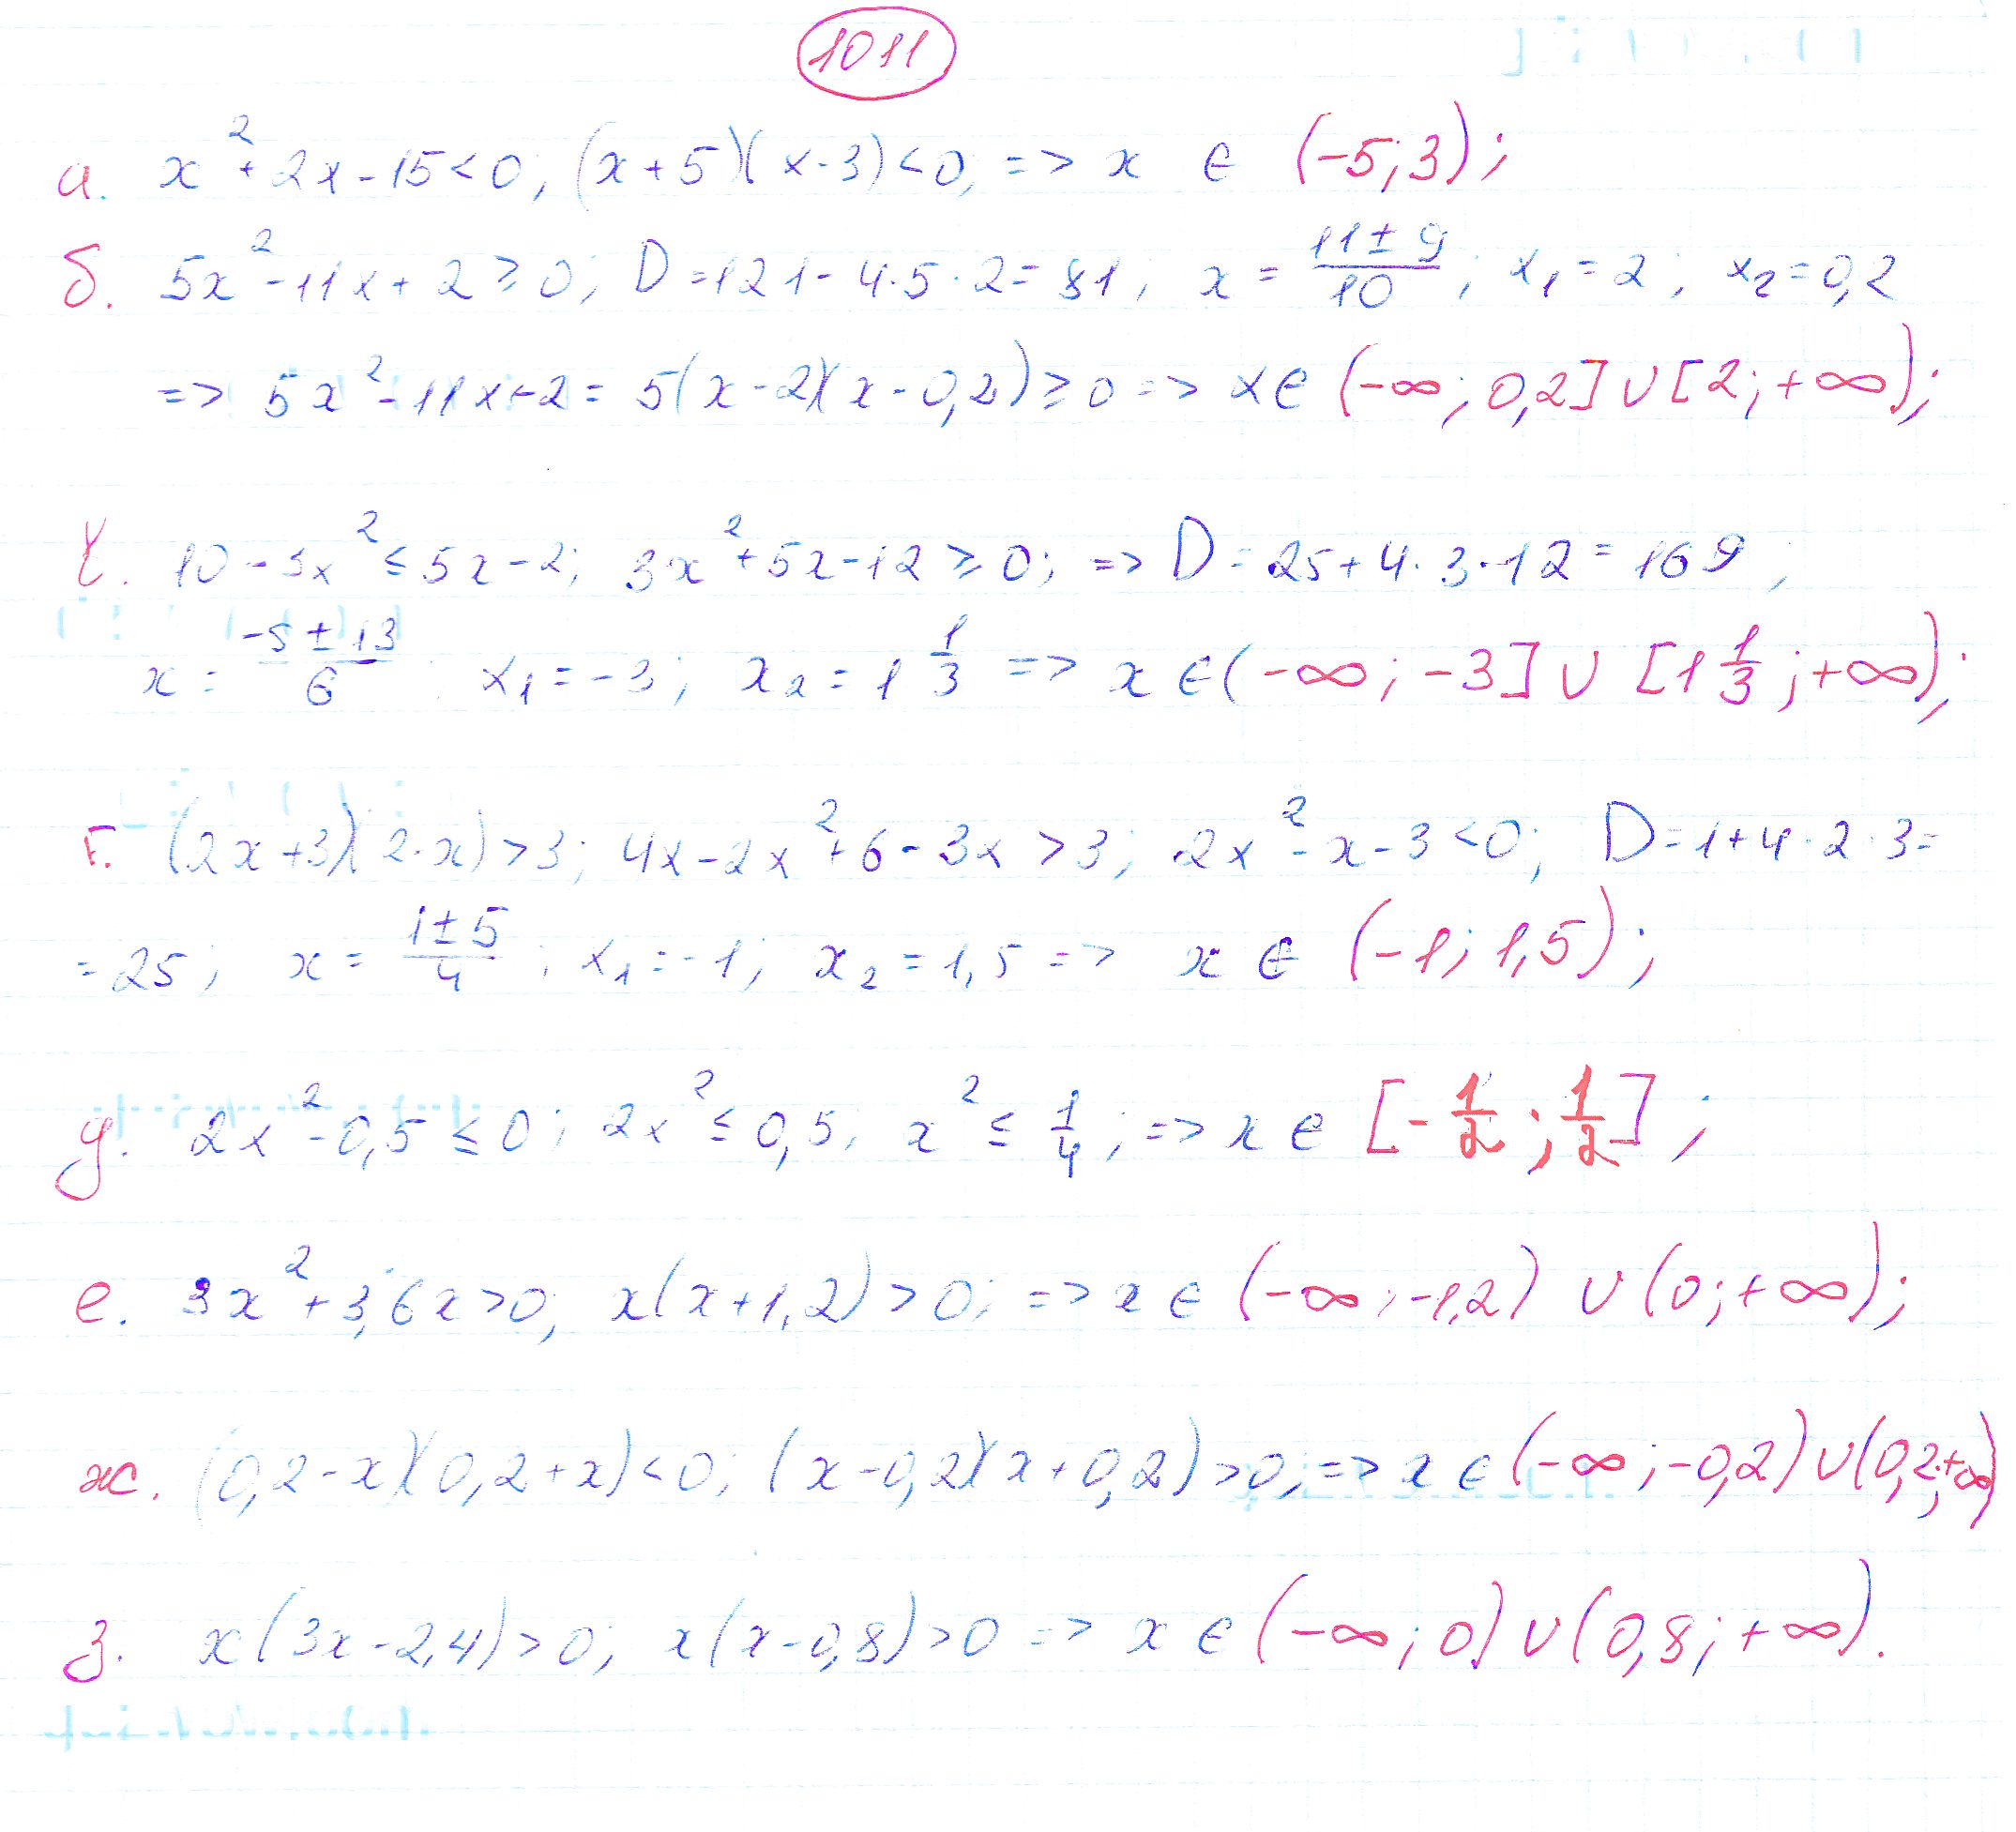 1011
а. x²+2x-15<0; (x+5)(x-3)<0; => x ∈ (-5; 3);
б. 5x²-11x+2≥0; D=121-4·5·2=81; x = (11±9)/10; x₁=2; x₂=0,2
=> 5x²-11x+2= 5(x-2)(x-0,2)≥0=> x∈ (-∞; 0,2]∪[2;+∞);
10-3x²≤5x-2; 3x²+5x-12≥0; => D=25+4·3·12=169;
x = (-5±13)/6; x₁=-3; x₂=1 1/3 => x∈(-∞; -3]∪[1 1/3;+∞);
г. (2x+3)(2-x)>3; 4x-2x²+6-3x>3; 2x²-x-3<0; D=1+4·2·3=
=25; x = (1±5)/4; x₁=-1; x₂=1,5=> x ∈ (-1; 1,5);
д. 2x²-0,5≤0; 2x²≤0,5; x²≤1/4; => x∈ [-1/2; 1/2];
е. 3x²+3,6x>0; x(x+1,2)>0; => x∈ (-∞;-1,2) ∪(0;+∞);
ж. (0,2-x)(0,2+x)<0; (x-0,2)(x+0,2)>0; => x∈(-∞;-0,2)∪(0,2;+∞)
з. x(3x-2,4)>0; x(x-0,8)>0 => x∈(-∞;0)∪(0,8;+∞).